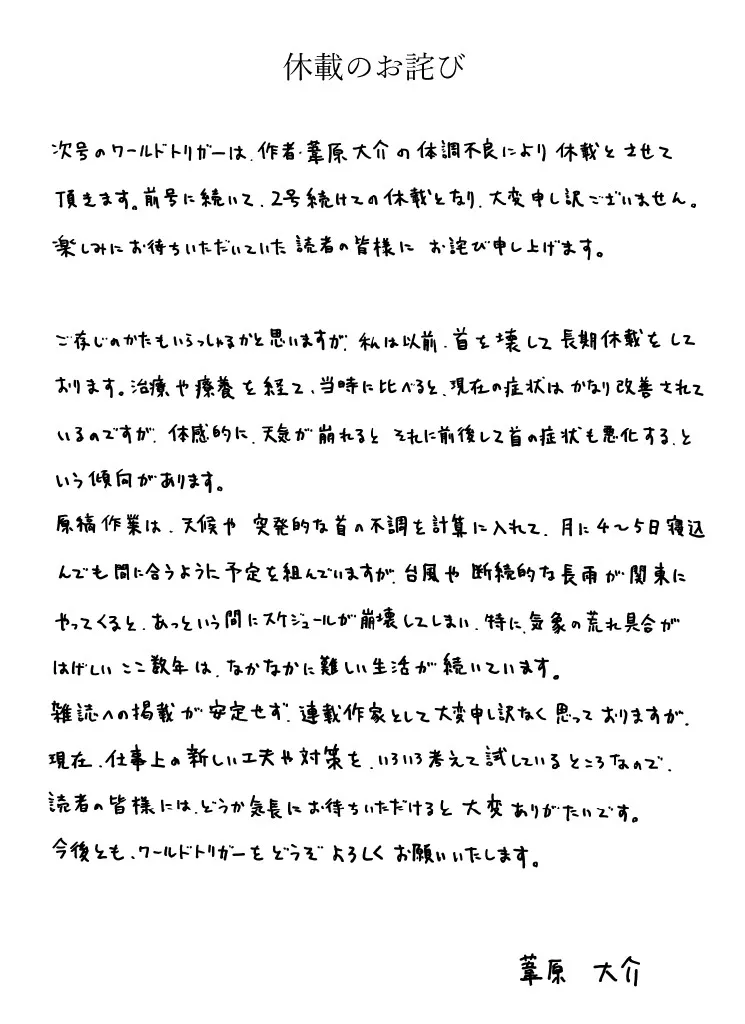 休載のお詫び
次号のワールドトリガーは、作者・葦原大介の体調不良により休載とさせて
頂きます。前号に続いて、2号続けての休載となり、大変申し訳ございません。
楽しみにお待ちいただいていた読者の皆様に お詫び申し上げます。
ご存じのかたもいらっしゃるかと思いますが、私は以前、首を壊して長期休載をして
おります。治療や療養を経て、当時に比べると、現在の症状はかなり改善されて
いるのですが、体感的に、天気が崩れると それに前後して首の症状も悪化する、と
いう傾向があります。
原稿作業は、天候や 突発的な首の不調を計算に入れて、月に4〜5日寝込
んでも間に合うように予定を組んでいますが、台風や断続的な長雨が関東に
やってくると、あっという間にスケジュールが崩壊してしまい、特に、気象の荒れ具合が
はげしいここ数年は、なかなかに難しい生活が続いています。
雑誌への掲載が安定せず、連載作家として大変申し訳なく思っておりますが、
現在、仕事上の新しい工夫や対策を、いろいろ考えて試しているところなので、
読者の皆様には、どうか気長にお待ちいただけると大変ありがたいです。
今後とも、ワールドトリガーをどうぞよろしくお願いいたします。
葦原 大介